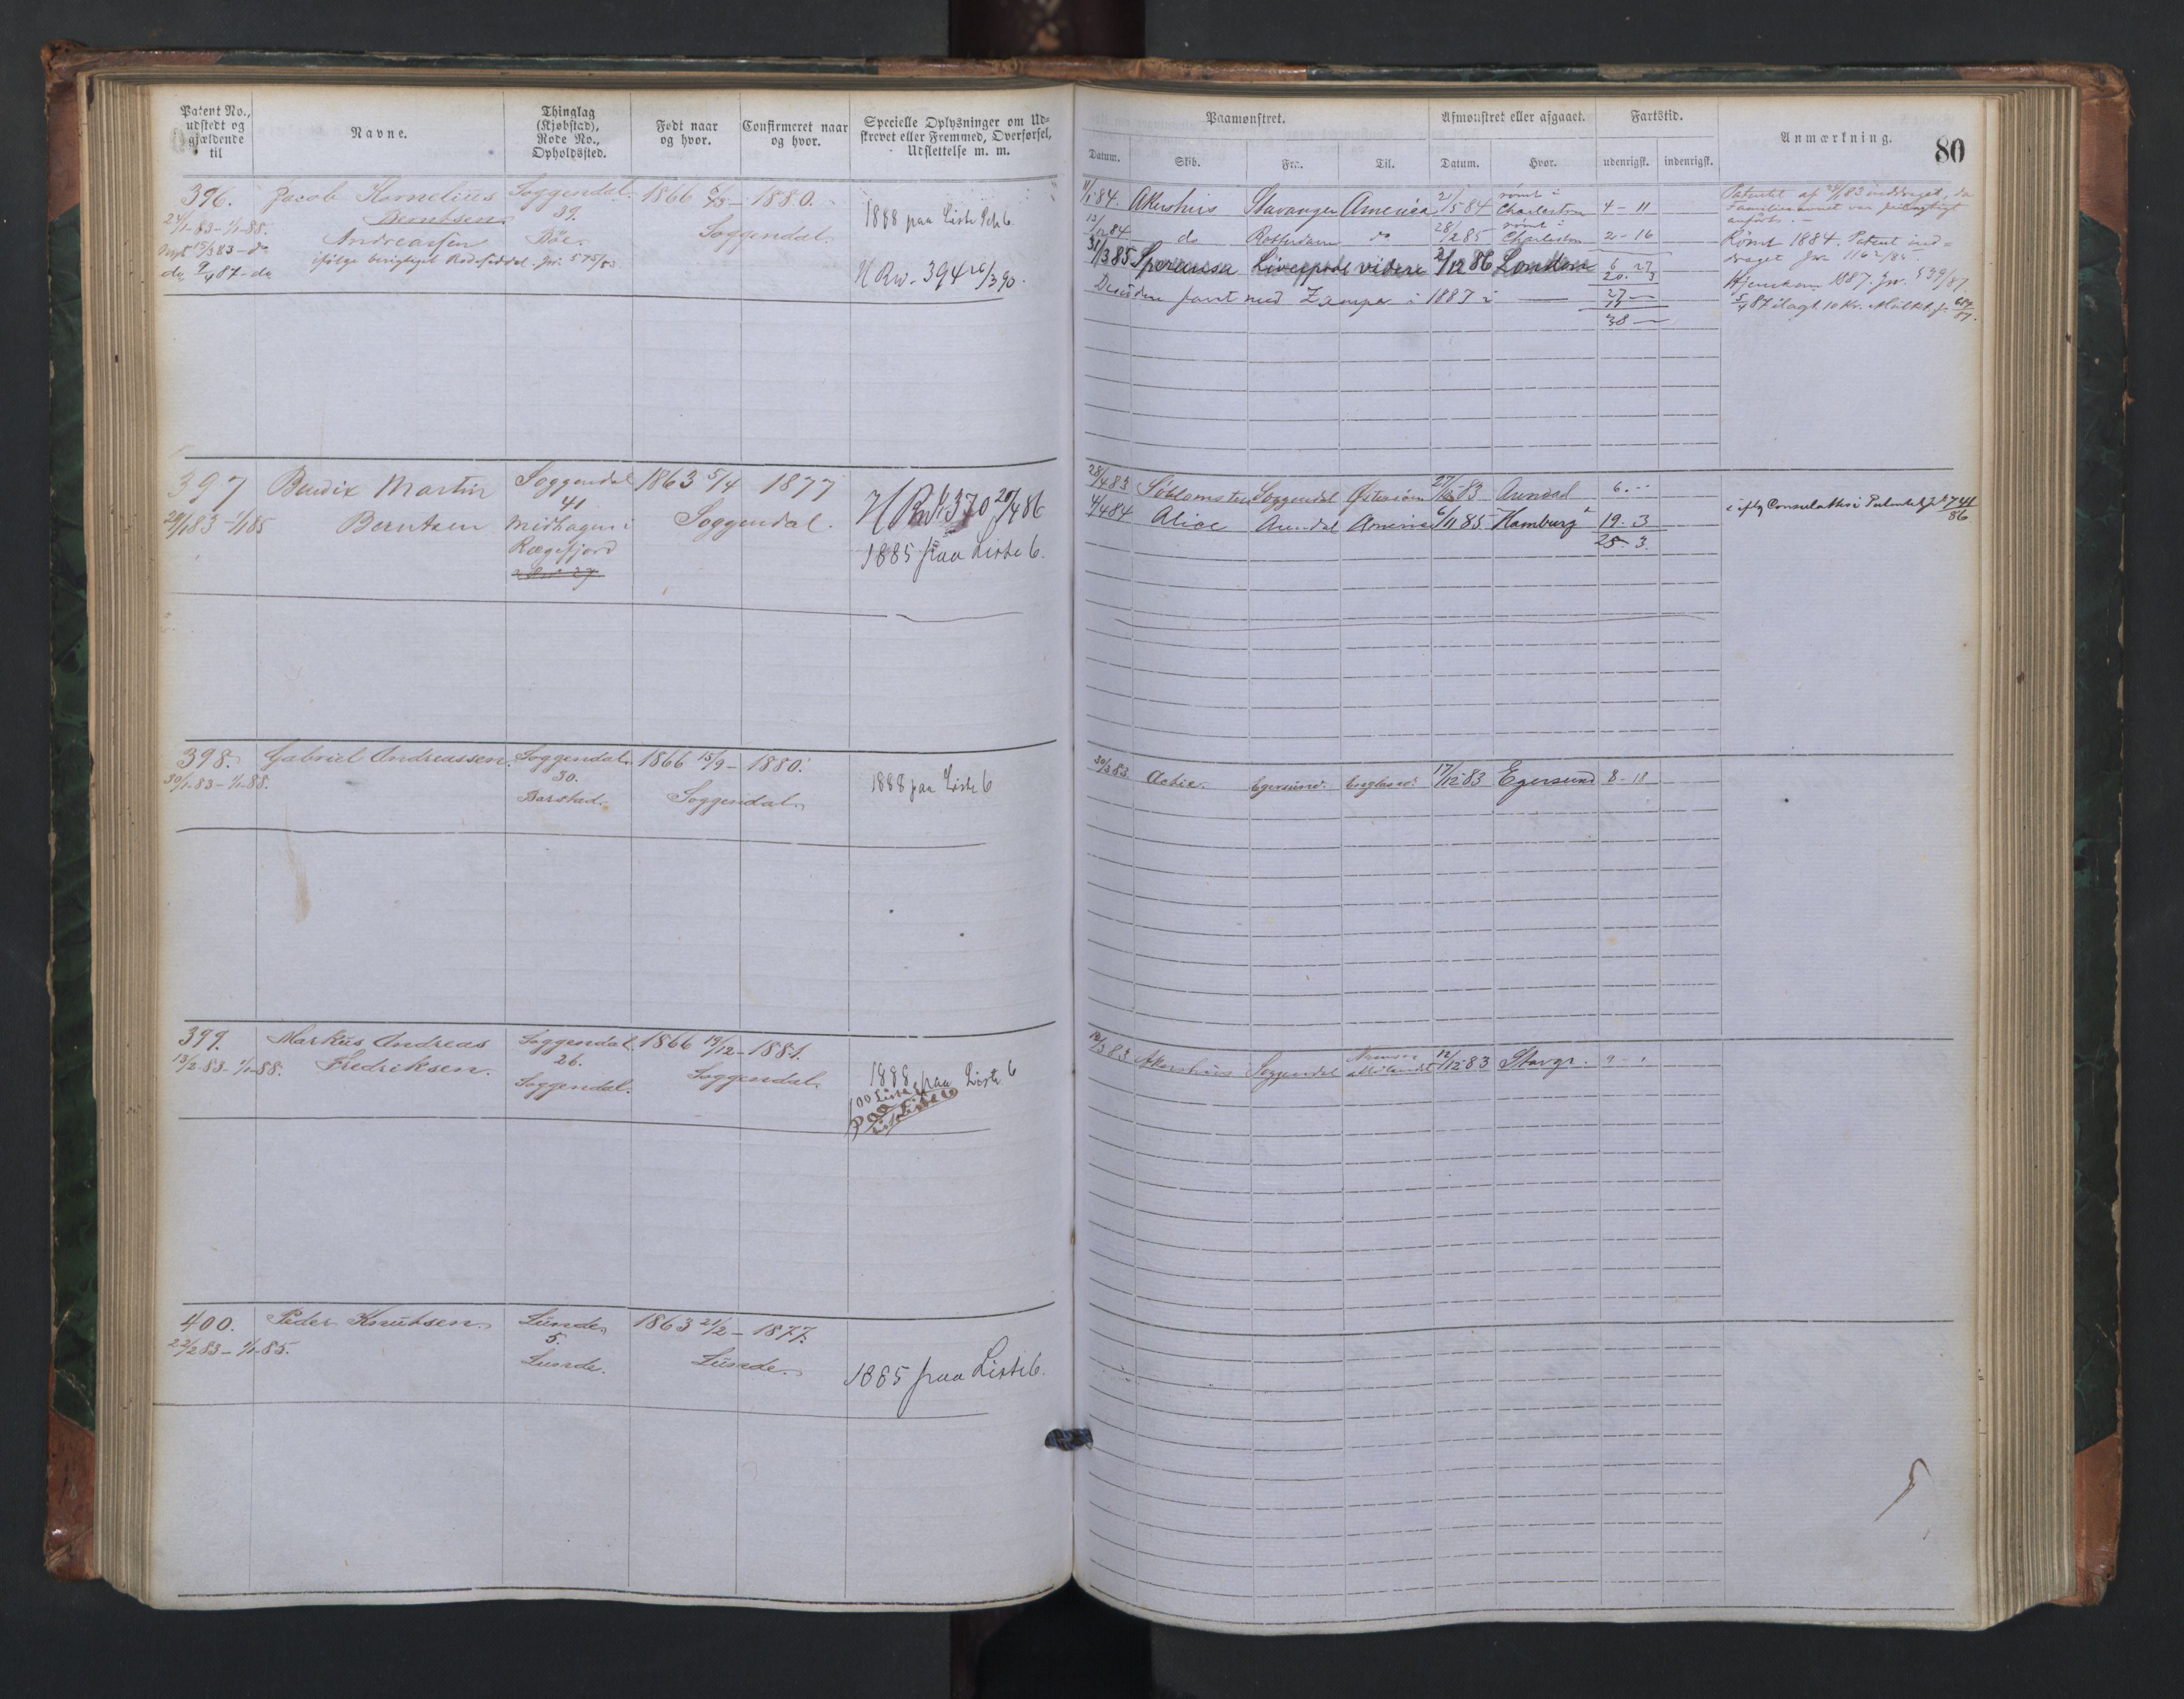 Patent No., udstedt og gjældende til
Navne.
Thinglag (Kjøbstad), Rode No., Opholdssted.
Født naar og hvor.
Confirmeret naar og hvor.
Specielle Oplysninger om Udskrevet eller Fremmed, Overførsel, Udslettelse m. m.
Paamønstret.
Datum.
Skib.
Fra.
Til.
Afmønstret eller afgaaet.
Datum.
Hvor.
Fartstid.
udenrigsk.
indenrigsk.
Anmærkning.
80
396. Jacob Kornelius Soggendal. 1866 1880.
24/1-83-1/1-88. Berntsen 39. Soggendal.
Nyt 15/3 83 - do Andreassen Böe.
do 9/4 87 - do ifølge berigtiget Rodeseddel. Jn. 575/83
1888 paa Liste 6
N Rw. 394 26/3 90.
11/1 84. Akershus Stavanger America 21/5 84 rømt i Charleston 4 - 11
13/12 84 do Rotterdam do 28/2 85 rømt i Charleston 2 - 16
31/3 85 Speranza Liverpool videre 2/12 86 London 20. 3
Desuden faret med Zampa i 1887 i
27 -
38 -
Patentet af 24/1 83 inddraget, da
Familienavnet var feilagtigt
anført. -
Rømt 1884. Patent ind-
draget Jn 1162/85.
Hjemkom 1887. Jn. 539/87.
5/4 87 ilagt 10 Kr. Mulkt. J.
397 Bendix Martin Soggendal 1863 5/4 1877
29/1 83 - 1/1 85 Berntsen 41 Soggendal.
Midhagen i
Rægefjord
N Rw. 370 20/4 86
1885 paa Liste 6.
28/4 83 Soggendal Østersøen 27/ 83 Arendal 6
4/4 84 Alice Arendal America 6/11 85 Hamburg 19. 3
25. 3.
398. Gabriel Andreassen. Soggendal. 1866 15/9 - 1880.
30/1-83-1/1-88. 30. Soggendal.
Barstad.
1888 paa Liste 6
30/3 83. Activ. Egersund. 17/12 83 Egersund 8 - 18
399. Markus Andreas Soggendal. 1866 19/12 - 1881.
13/2 83. 1/1-88. Fredriksen. 26. Soggendal.
Soggendal.
1888 paa Liste 6
Akershus Soggendal 12/12 83 Stavgr.
400. Peder Knutsen. Lunde. 1863 21/2 - 1877.
22/2 83 - 1/1-85. 5. Lunde.
Lunde.
1885 paa Liste 6.